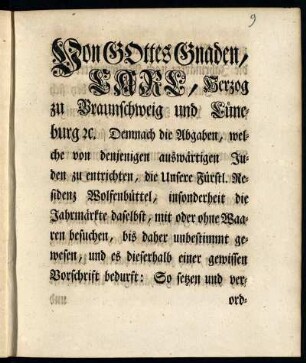 9
Von GOttes Gnaden,
CARL, Herzog
zu Braunschweig und Lüne-
burg ꝛc. Demnach die Abgaben, wel-
che von denjenigen auswärtigen Ju-
den zu entrichten, die Unsere Fürstl. Re-
sidenz Wolfenbüttel, insonderheit die
Jahrmärkte daselbst, mit oder ohne Waa-
ren besuchen, bis daher unbestimmt ge-
wesen, und es dieserhalb einer gewissen
Vorschrift bedurft: So setzen und ver-
ord-